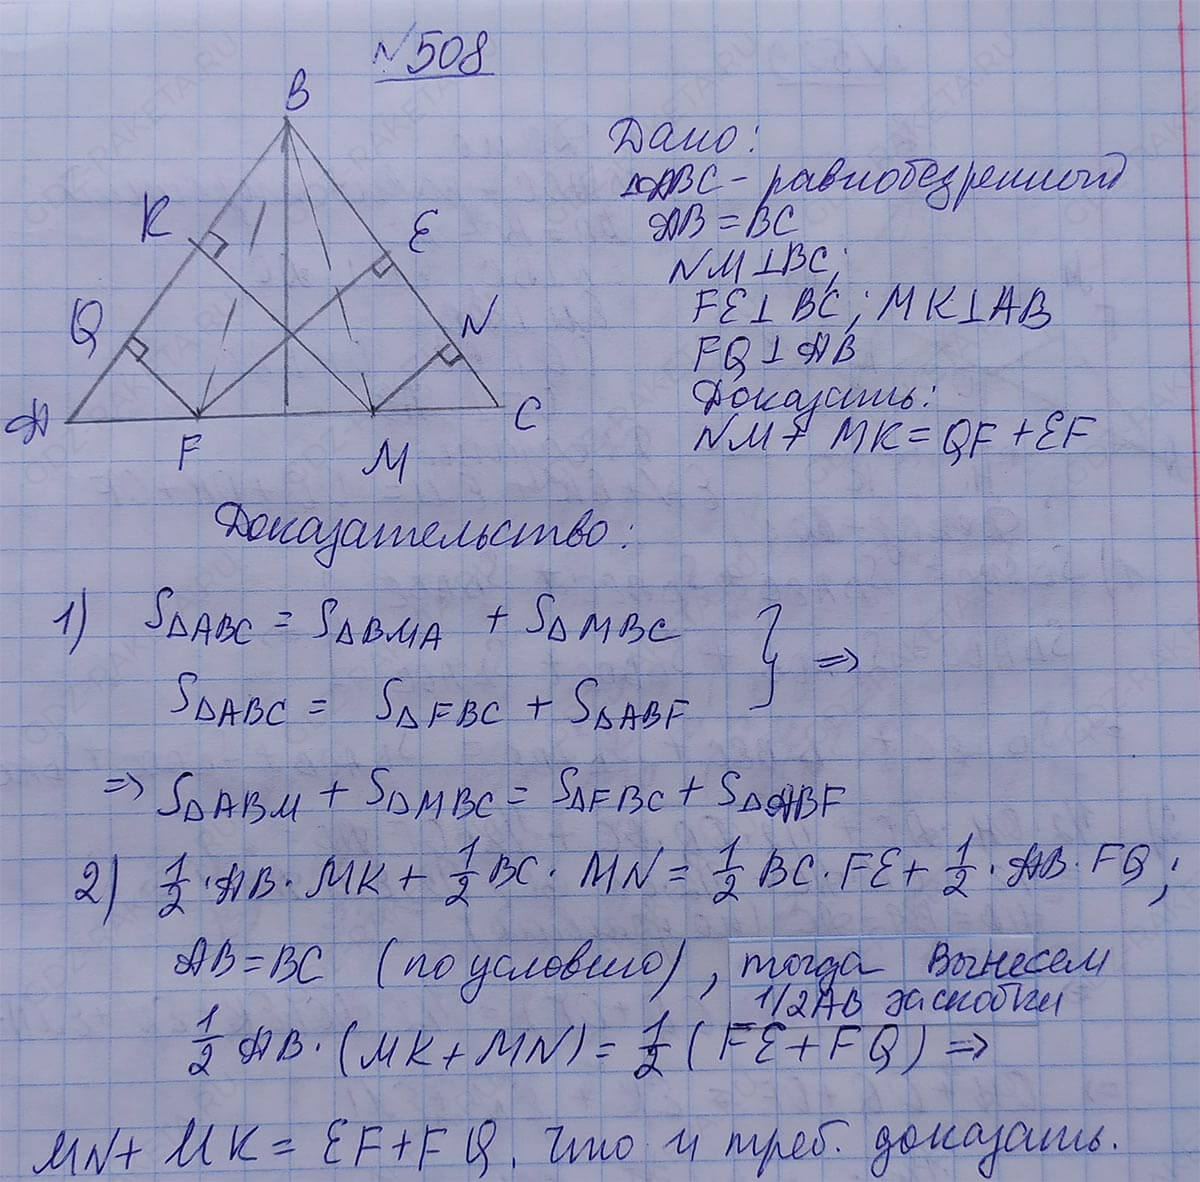 №508
B
K
E
Q
N
A
F
M
C
Дано:
△ABC - равнобедренный
AB = BC
NM⊥BC;
FE⊥BC; MK⊥AB
FQ⊥AB
Доказать:
NM + MK = QF + EF
Доказательство:
1) S△ABC = S△BMA + S△MBC
S△ABC = S△FBC + S△ABF } =>
=> S△ABM + S△MBC = S△FBC + S△ABF
2) 1/2 · AB · MK + 1/2 BC · MN = 1/2 BC · FE + 1/2 · AB · FQ;
AB = BC (по условию), тогда вынесем
1/2AB за скобки
1/2 AB · (MK + MN) = 1/2 (FE + FQ) =>
MN + MK = EF + FQ, что и треб. доказать.